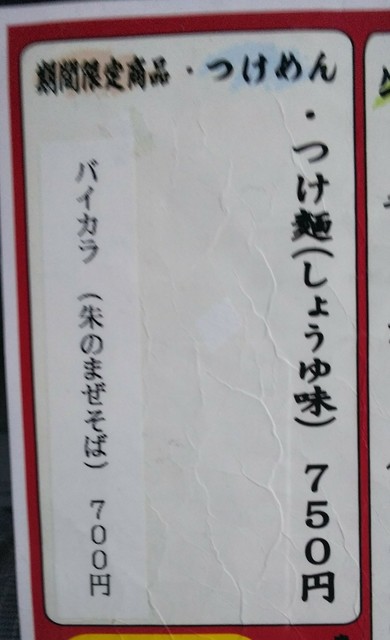 期間限定商品・つけめん
・つけ麺(しょうゆ味) 750円
バイカラ (朱のまぜそば) 700円